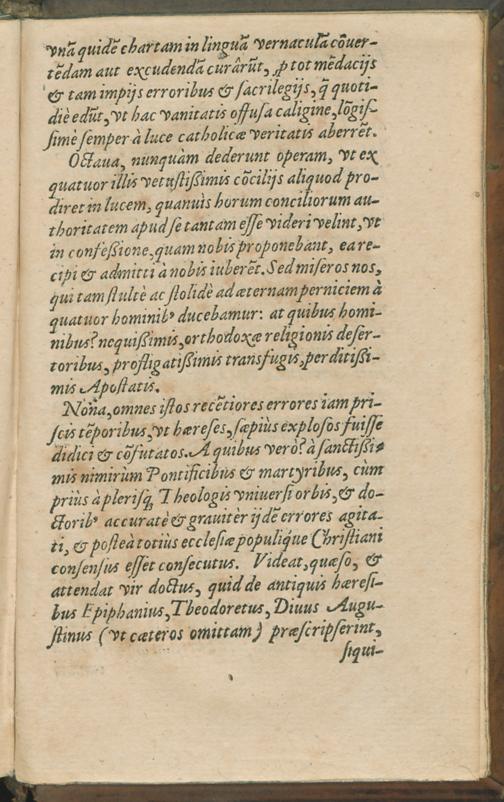 vnā quidē chartam in linguā vernaculā cōuer-
tēdam aut excudendā curârūt, ꝓ tot mēdacijs
& tam impijs erroribus & sacrilegijs, q̄ quoti-
diè edūt, vt hac vanitatis offusa caligine, lōgiſ-
ſimè ſemper à luce catholicæ veritatis aberrēt.
Octaua, nunquam dederunt operam, vt ex
quatuor illis vetuſtißimis cōcilijs aliquod pro-
diret in lucem, quanuis horum conciliorum au-
thoritatem apud ſe tantam eſſe videri velint, vt
in confeßione, quam nobis proponebant, ea re-
cipi & admitti à nobis iuberēt. Sed miſeros nos,
qui tam ſtultè ac ſtolidè ad æternam perniciem à
quatuor hominibꝰ ducebamur: at quibus homi-
nibus? nequißimis, orthodoxæ religionis deſer-
toribus, profligatißimis transfugis, perditißi-
mis Apoſtatis.
Nona, omnes iſtos recētiores errores iam pri-
ſcis tēporibus, vt hæreſes, ſæpiùs exploſos fuiſſe
didici & cōfutatos. A quibus verò? à ſanctißi-
mis nimirùm Pontificibus & martyribus, cùm
priùs à pleriſq; Theologis vniuerſi orbis, & do-
ctoribꝰ accuratè & grauitèr ijdē errores agita-
ti, & poſteà totius eccleſiæ populiq́ue Chriſtiani
conſenſus eſſet conſecutus. Videat, quæſo, &
attendat vir doctus, quid de antiquis hæreſi-
bus Epiphanius, Theodoretus, Diuus Augu-
ſtinus (vt cæteros omittam) præſcripſerint,
ſiqui-